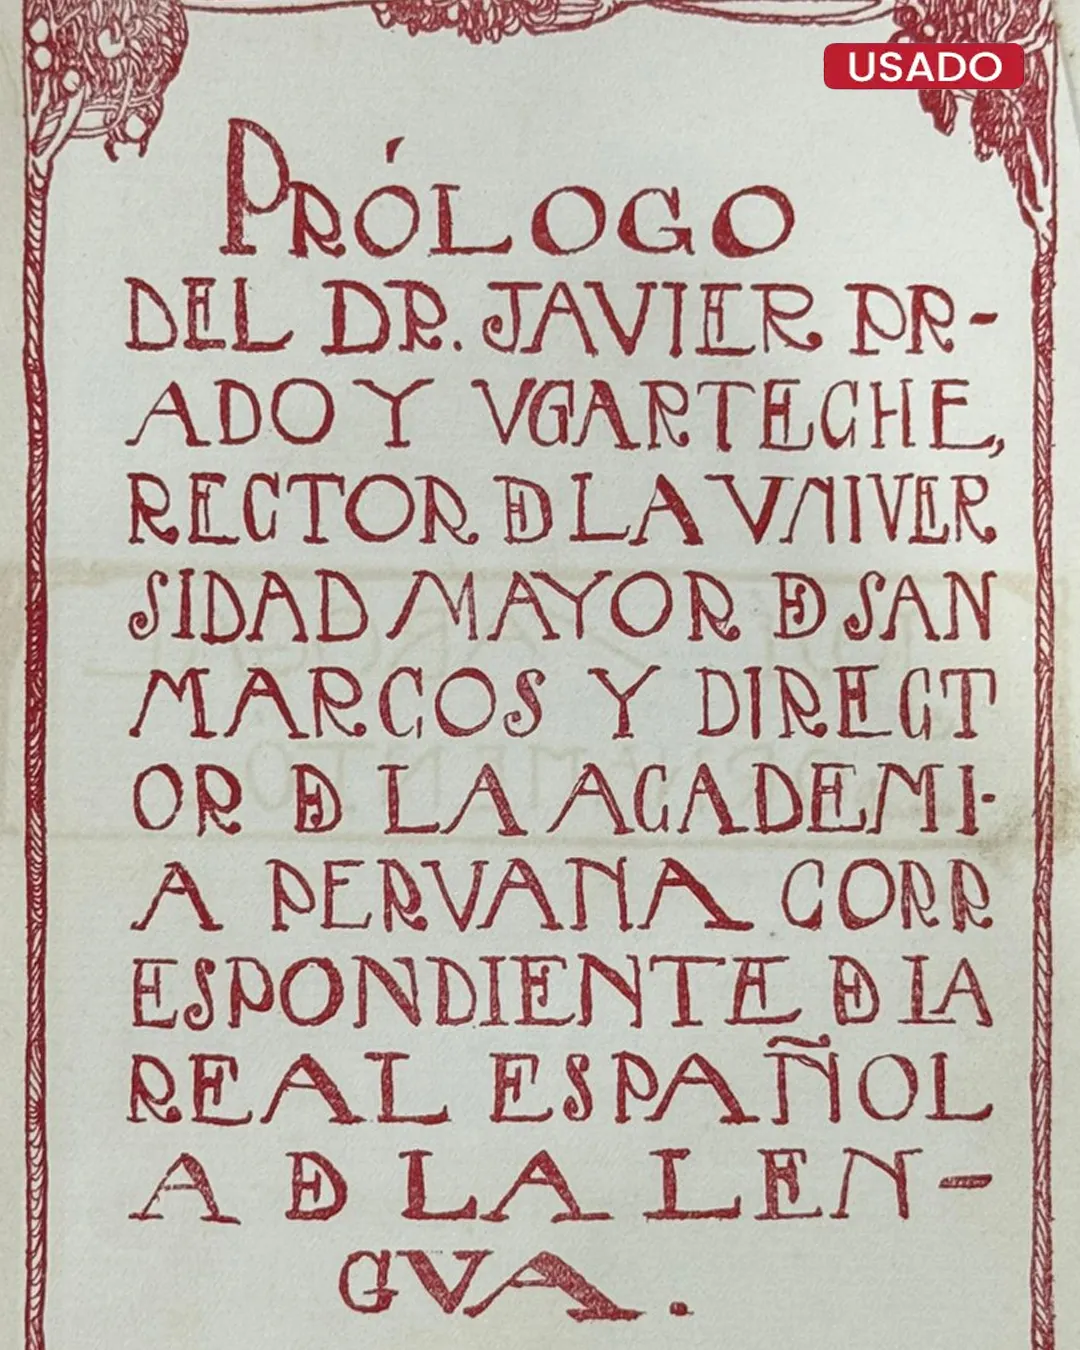 USADO
PRÓLOGO
DEL DR. JAVIER PR-
ADO Y VGARTECHE,
RECTOR DE LA VNIVER
SIDAD MAYOR DE SAN
MARCOS Y DIRECT
OR DE LA ACADEMI-
A PERVANA CORR
ESPONDIENTE DE LA
REAL ESPAÑOL
A DE LA LEN-
GVA.